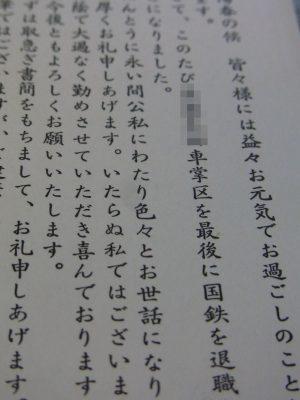 春の候 皆々様には益々お元気でお過ごしのこと
ます。
て、このたび 車掌区を最後に国鉄を退職
になりました。
んとうに永い間公私にわたり色々とお世話になり
厚くお礼申しあげます。いたらぬ私ではございま
蔭で大過なく勤めさせていただき喜んでおります
今後ともよろしくお願いいたします。
ずは取急ぎ書簡をもちまして、お礼申しあげます。
ではございますが、